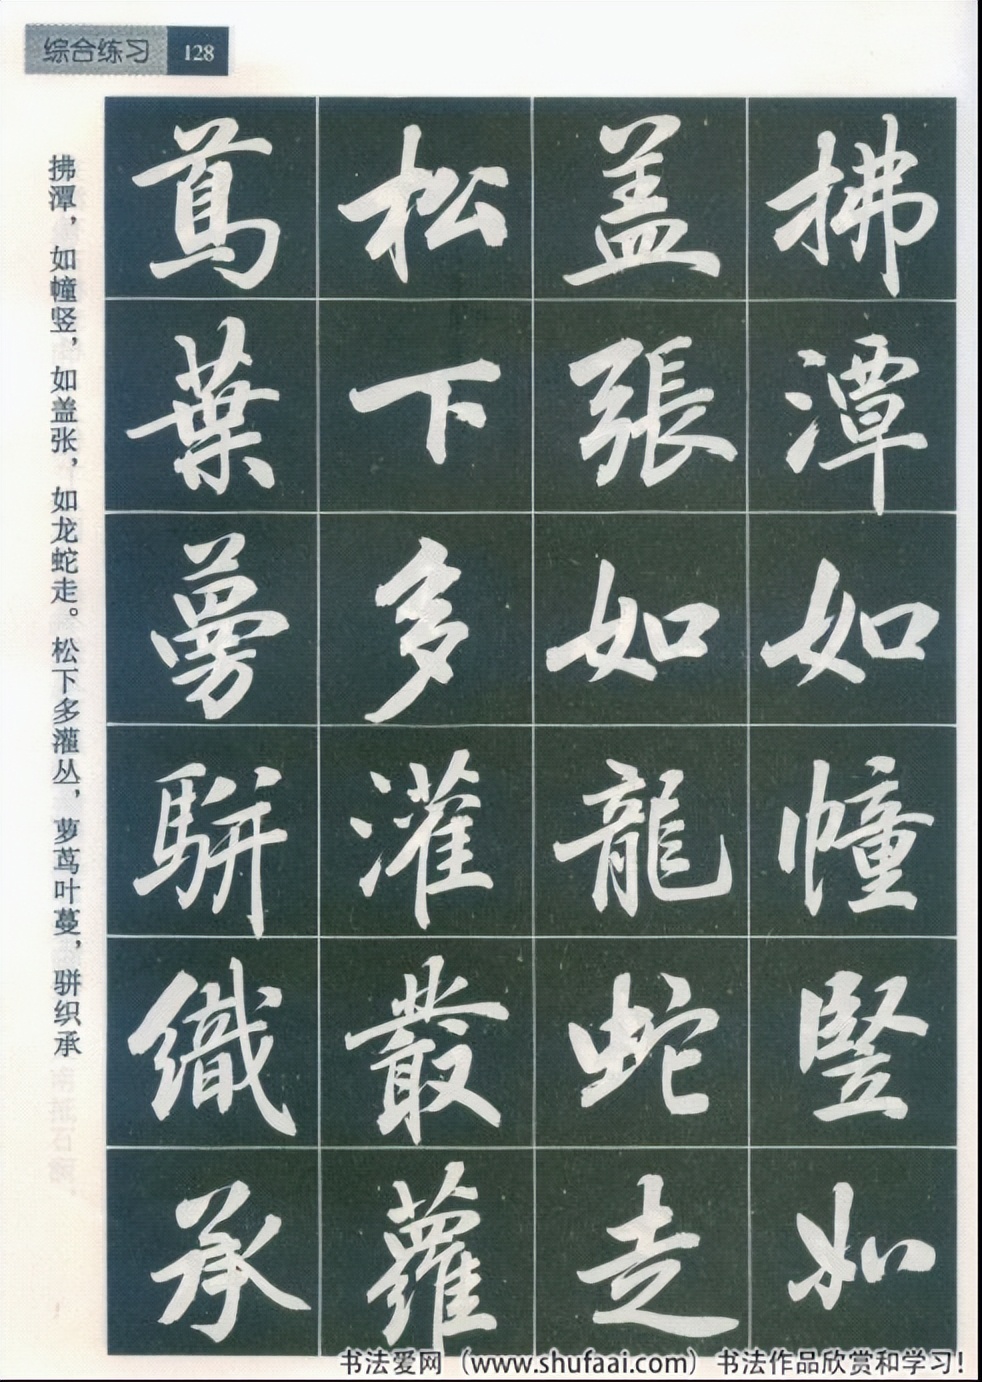 综合练习 128
拂潭如幢竖如
盖張如龍蛇走
松下多灌叢蘿
蔦葉蔓駢織承
拂潭，如幢竖，如盖张，如龙蛇走。松下多灌丛，萝茑叶蔓，骈织承
书法爱网（www.shufaai.com）书法作品欣赏和学习！